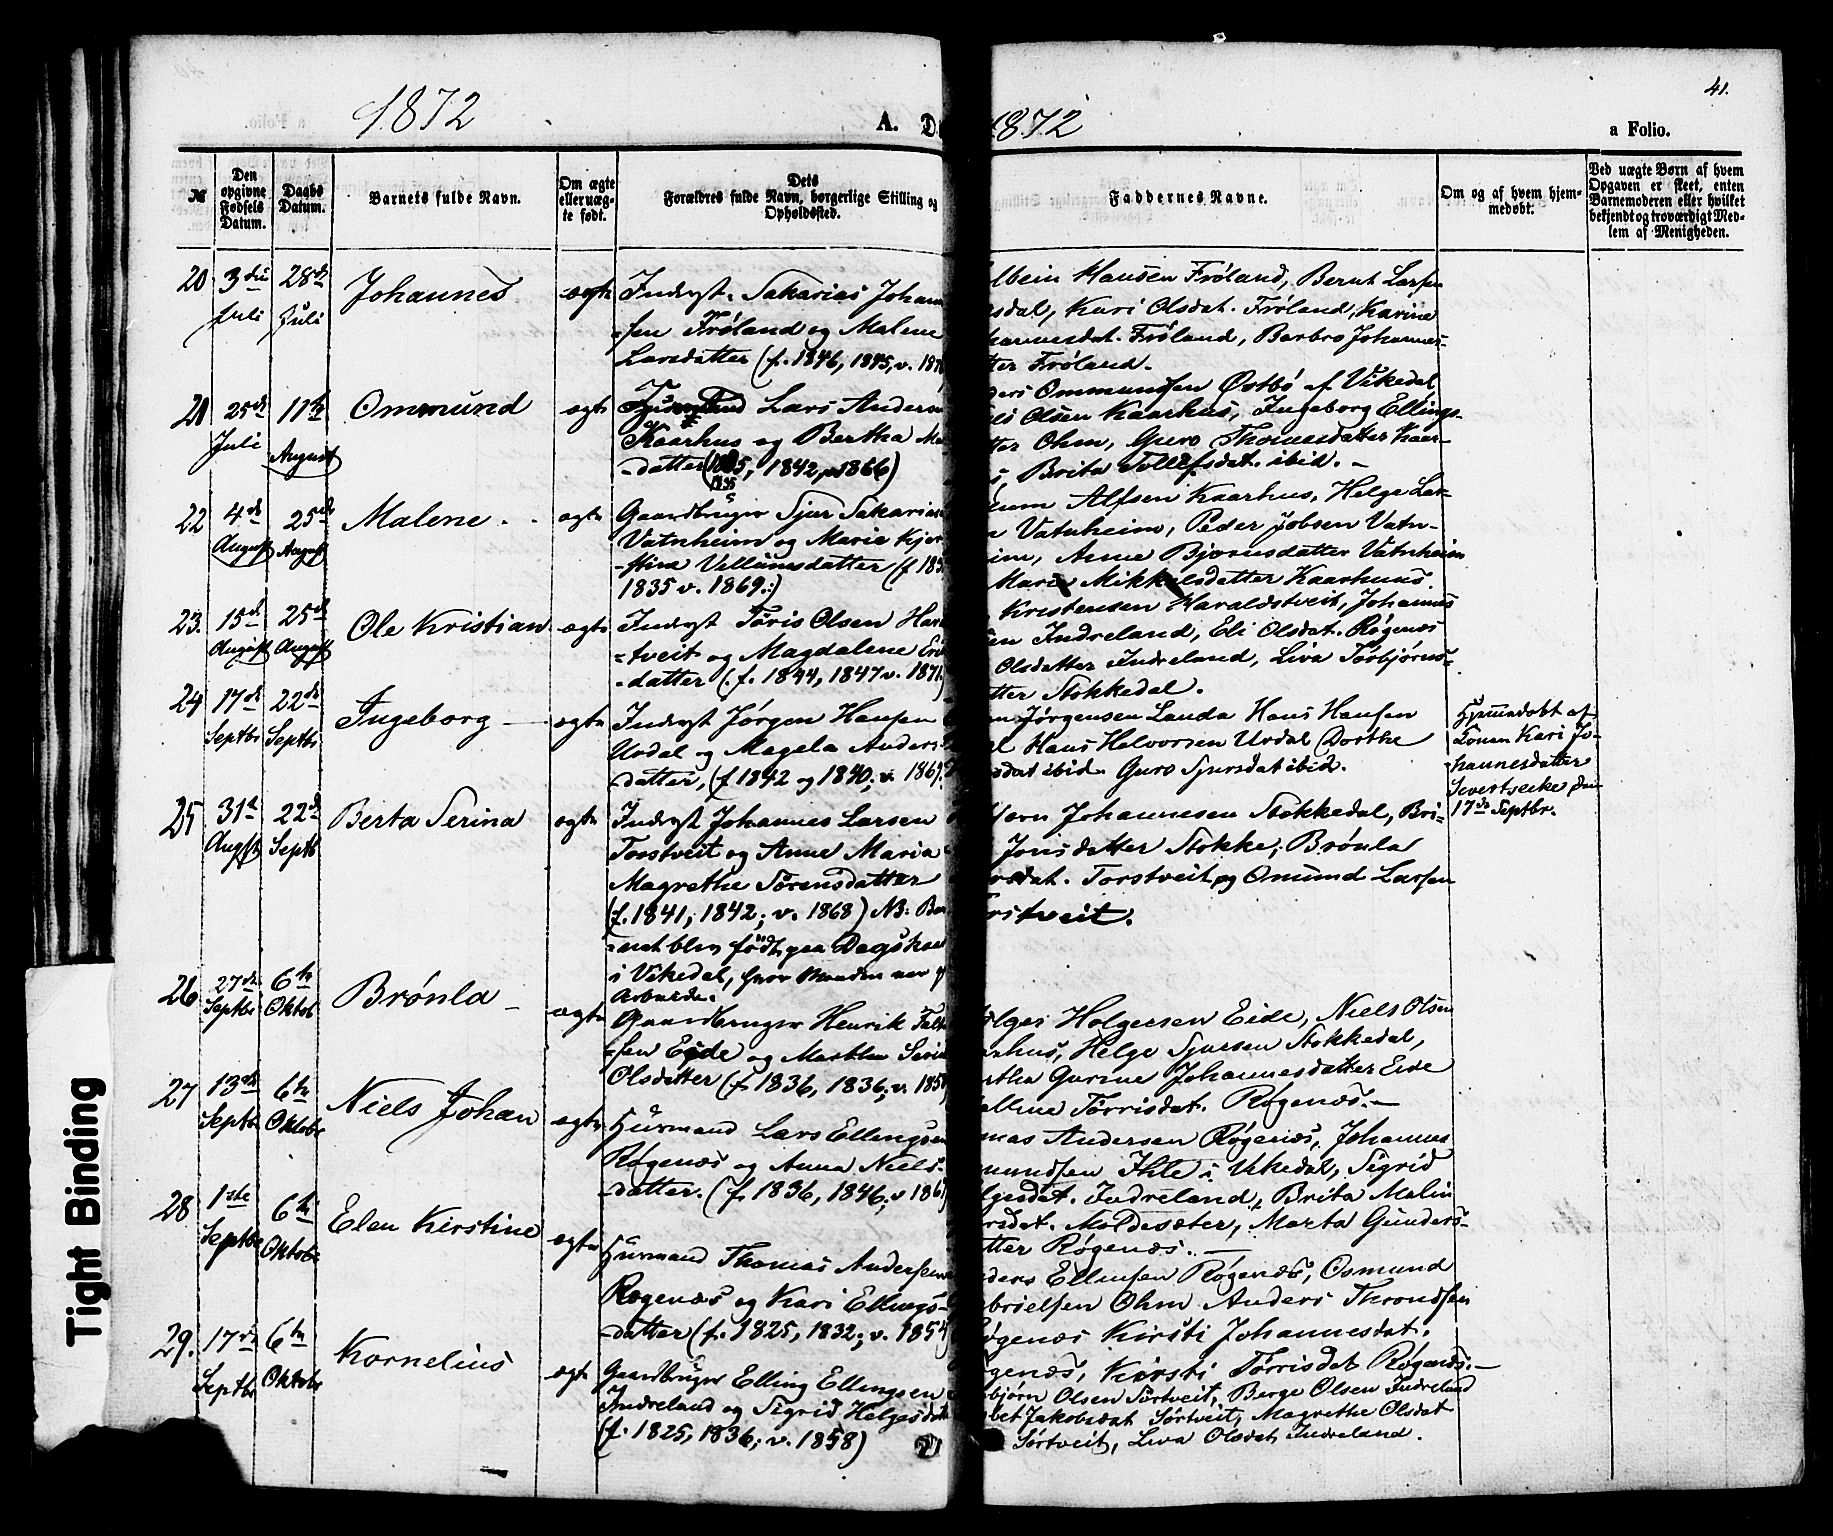 41.
1872
A. D
1872
a Folio.
№
Den opgivne Fødsels Datum.
Daabs Datum.
Barnets fulde Navn.
Om ægte eller uæg- te født.
Dets Forældres fulde Navn, borgerlige Stilling og Opholdssted.
Faddernes Navne.
Om og af hvem hjem- medøbt.
Ved uægte Børn af hvem Opgaven er skeet, enten Barnemoderen eller hvilket bekjendt og troværdigt Med- lem af Menigheden.
20
3die Juli
28de Juli
Johannes
ægte
Inderst. Sakarias Johan
-sen Frøland og Malene
Larsdatter (f. 1846, 1845, v. 187
lbein Hansen Frøland, Bernt Larsen
sdal, Kari Olsdat. Frøland, Karine
hannesdat. Frøland, Barbro Johannes-
tter Frøland.
21
25de Juli
11te August
Ommund
ægte
Lars Anders
Kaarhus og Bertha Ma
-datter (1835, 1842, v. 1866)
1835
ders Ommundsen Østbø af Vikedal
Olsen Kaarhus, Ingeborg Ellings-
tter Ohm, Guro Thomesdatter Kaar-
s, Brita Tollefsdat. ibid. -
22
4de August
25de August
Malene
ægte
Gaardbruger Sjur Sakarias
Vatnheim og Marie Kjer
-stine Vellumsdatter (f 183
1835 v. 1869:)
um Alfsen Kaarhus, Helge Lar-
n Vatnheim, Peder Jobsen Vatn-
eim, Anne Bjørnsdatter Vatnheim
Mari Mikkelsdatter Kaarhuus
23.
15de August
25de August
Ole Kristian
ægte
Inderst Tøris Olsen Har
-tveit og Magdalene Eri
-datter (.f. 1844, 1847 v. 1871
Kristensen Haraldstveit, Johannes
sen Indreland, Eli Olsdat. Røgenæs
Olsdatter Indreland, Liva Torbjørns-
tter Stokkedal.
24
17de Septbr
22de Septbr
Ingeborg
ægte
Inderst Jørgen Hansen
Urdal og Magela Anders-
datter, (f 1842 og 1840; v. 1869.
n Jørgensen Landa Hans Hansen
l Hans Halvorsen Urdal Dorthe
sdat ibid. Guro Sjursdat ibid.
Hjemmedøbt af
Konen Kari Jo-
hannesdatter
den
17de Septbr.
25
31te Augst
22de Septb
Berta Serina
ægte
Inderst Johannes Larsen
Torstveit og Anne Maria
Magrethe Sørensdatter
(f. 1841, 1842; v. 1868) NB: Bar
-net blev født paa Dagsk
i Vikedal, hvor Manden var p
Arbeide.
Johannesen Stokkedal, Bri-
Jonsdatter Stokke, Brønla
rsdat. Torstveit og Omund Larsen
orstveit.
26
27de Septbr
6te Oktob
Brønla
ægte
Gaardbruger Henrik
-sen Eide og Marthe Seri
Olsdatter (f. 1836, 1836; v. 185
olger Holgersen Eide, Niels Olsen
arhus, Helge Sjursen Stokkedal,
rtha Gurine Johannesdatter Eide
Tørrisdat. Røgenæs. -
27
13de Septbr
6te Oktobr
Niels Johan
ægte
Huusmand Lars Ellingsen
Røgenæs og Anna Niels-
datter. (f. 1836, 1846; v 186
mas Andersen Røgenæs, Johannes
mundsen Ihle i Vikedal, Sigrid
lgesdat. Indreland, Brita Malin
rsdat. Moldesæter, Marta Gunders-
tter Røgenæs. -
28
1ste Septbr
6te Oktobr
Elen Kirstine
ægte
Huusmand Thomas Andersen
Røgenæs og Kari Ellings-
datter (f. 1825, 1832; v. 1854
ders Ellinsen Røgenæs, Osmund
brielsen Ohm Anders Throndsen
øgenæs Kirsti Johannesdat.
genæs, Kirsti Tørrisdat Røgenæs. -
29.
17de Septbr
6te Oktobr
Kornelius
ægte
Gaardbruger Elling Ellingsen
Indreland og Sigrid Helgesdat
(f. 1825, 1836; v. 1858)
bjørn Olsen Sørtveit, Berge Olsen Indreland
bet Jakobsdat Sørtveit, Magrethe Olsdat
Sørtveit, Liva Olsdat, Indreland.
Tight Binding